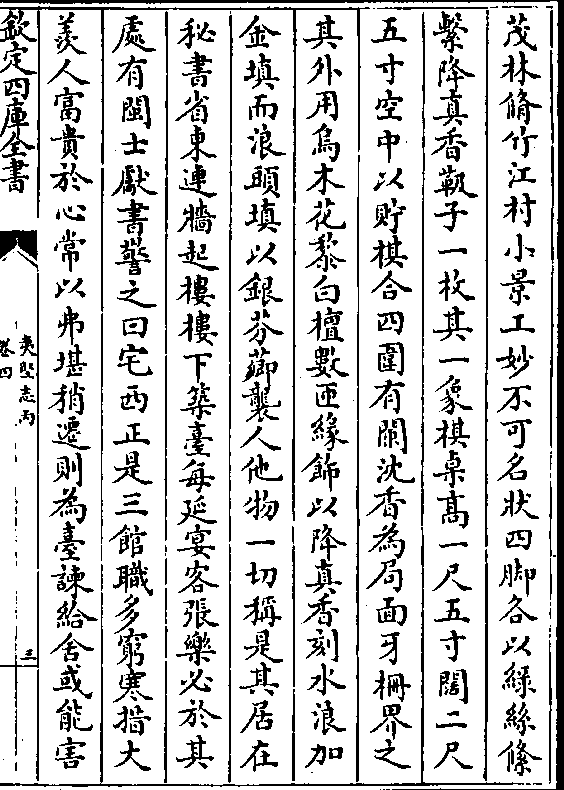 茂林脩竹江村小景工妙不可名狀四脚各以綠絲絛
繫降真香靸子一枚其一象棋桌髙一尺五寸闊二尺
五寸空中以貯棋合四圍有闌沈香為局面牙柵界之
其外用烏木花棃白檀數匝緣飾以降真香刻水浪加
金填而浪頭填以銀芬薌襲人他物一切稱是其居在
秘書省東連牆起樓樓下築臺每延宴客張樂必於其
處有閩士獻書警之曰宅西正是三館職多窮寒措大
羨人富貴於心常以弗堪稍遷則為臺諫給舍或能害
欽定四庫全書
夷堅志丙
卷四
三